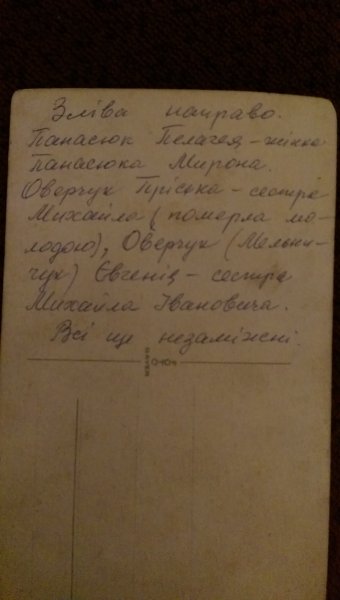 Зліва направо.
Панасюк Пелагея – жінка
Панасюка Мирона.
Оверчук Пріська – сестра
Михайла (померла мо-
лодою), Оверчук (Мельни-
чук) Євгенія – сестра
Михайла Івановича.
Всі ще незаміжні.